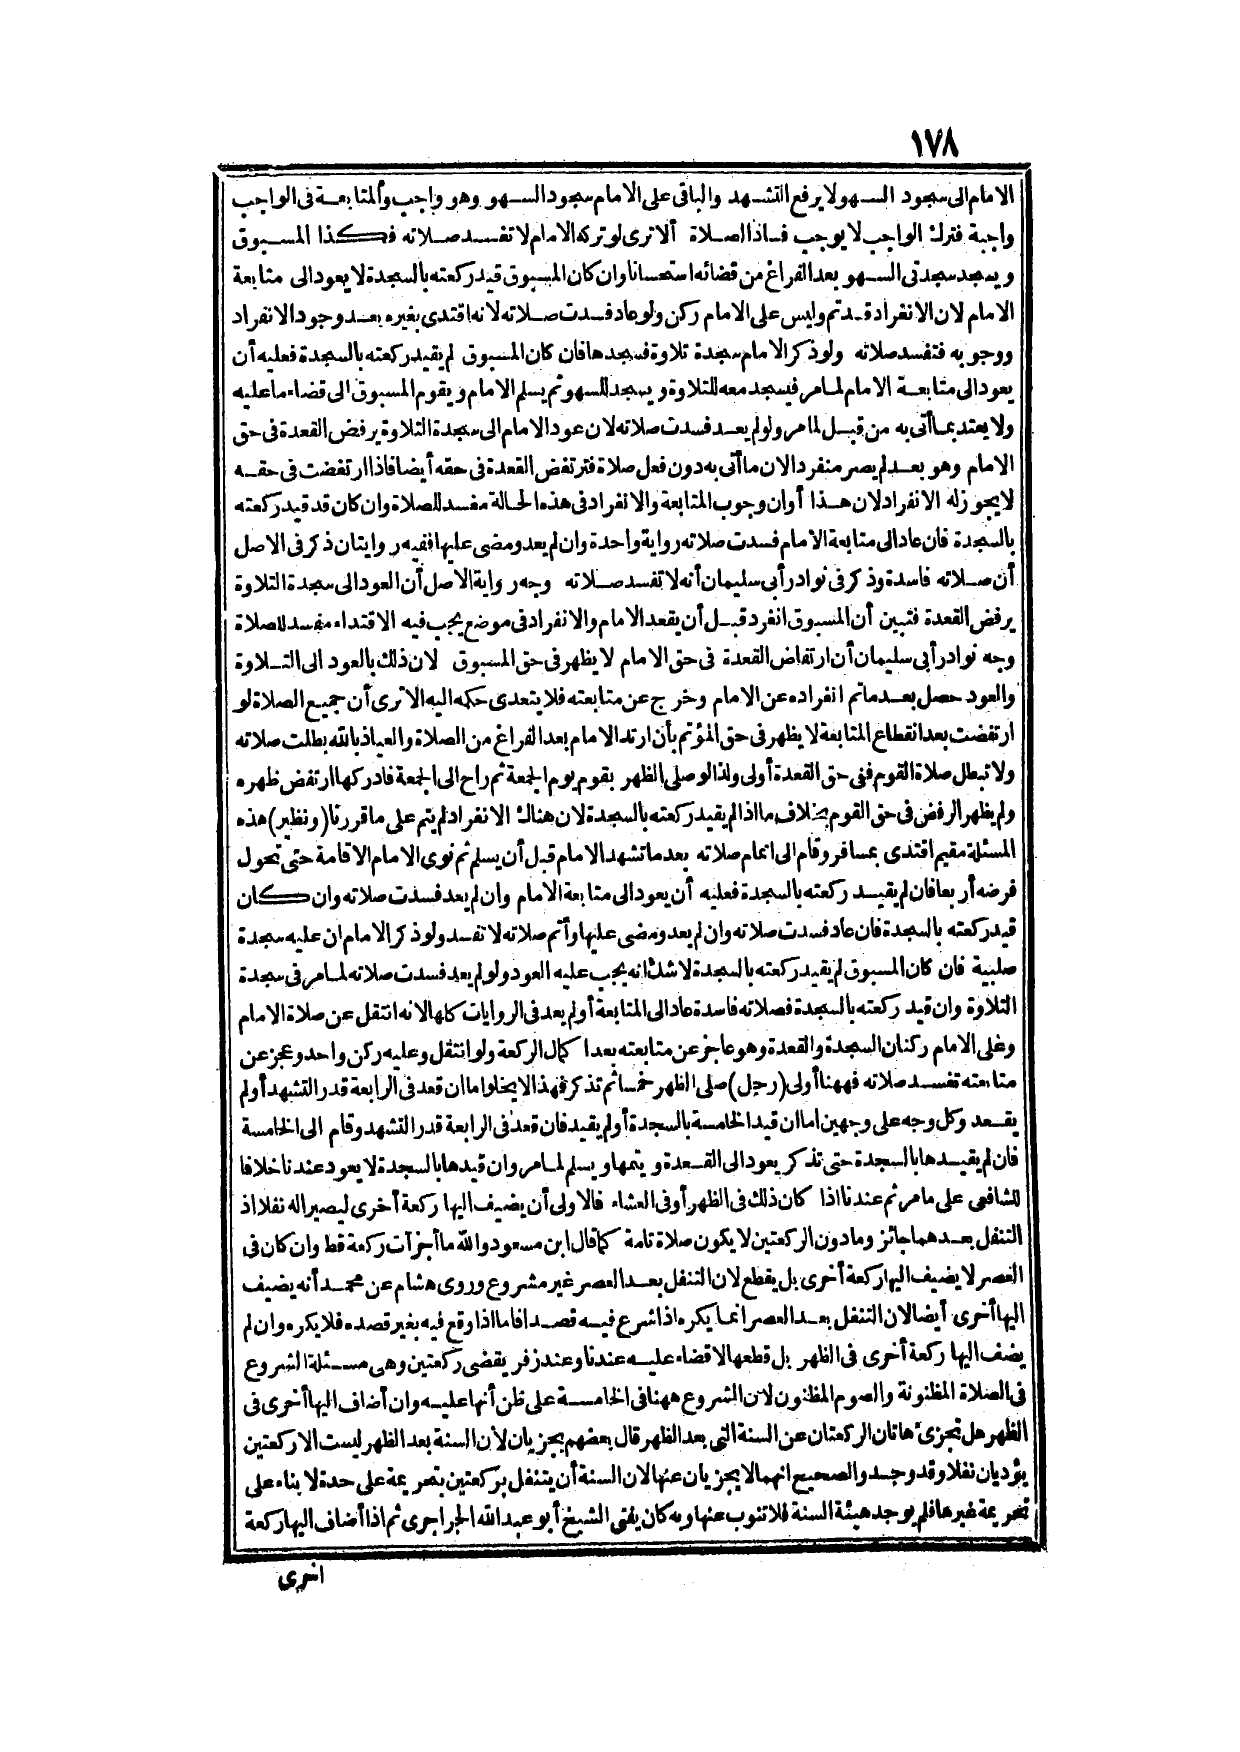 ١٧٨
الامام الى سجود السهو لا يرفع التشهد والباقى على الامام سجود السهو وهو واجب والمتابعة فى الواجب
واجبة فترك الواجب لا يوجب فساد الصلاة ألا ترى لو تركه الامام لا تفسد صلاته فكذا المسبوق
ويسجد سجدتى السهو بعد الفراغ من قضائه استحسانا وان كان المسبوق قيد ركعته بالسجدة لا يعود الى متابعة
الامام لان الانفراد قد تم وليس على الامام ركن ولو عاد فسدت صلاته لانه اقتدى بغيره بعد وجود الانفراد
ووجوبه فتفسد صلاته ولو ذكر الامام سجدة تلاوة فسجدها فان كان المسبوق لم يقيد ركعته بالسجدة فعليه أن
يعود الى متابعة الامام لما مر فيسجد معه للتلاوة ويسجد للسهو ثم يسلم الامام ويقوم المسبوق الى قضاء ما عليه
ولا يعتد بما أتى به من قبل لما مر ولو لم يعد فسدت صلاته لان عود الامام الى سجدة التلاوة يرفض القعدة فى حق
الامام وهو بعد لم يصر منفردا لان ما أتى به دون فعل صلاة فترتفض القعدة فى حقه أيضا فاذا ارتفضت فى حقه
لا يجوز له الانفراد لان هذا أوان وجوب المتابعة والانفراد فى هذه الحالة مفسد للصلاة وان كان قد قيد ركعته
بالسجدة فان عاد الى متابعة الامام فسدت صلاته رواية واحدة وان لم يعد ومضى عليها ففيه روايتان ذكر فى الاصل
أن صلاته فاسدة وذكر فى نوادر أبى سليمان أنه لا تفسد صلاته وجه رواية الاصل أن العود الى سجدة التلاوة
يرفض القعدة فتبين أن المسبوق انفرد قبل أن يقعد الامام والانفراد فى موضع يجب فيه الاقتداء مفسد للصلاة
وجه نوادر أبى سليمان أن ارتفاض القعدة فى حق الامام لا يظهر فى حق المسبوق لان ذلك بالعود الى التلاوة
والعود حصل بعد ما تم انفراده عن الامام وخرج عن متابعته فلا يتعدى حكمه اليه الا ترى أن جميع الصلاة لو
ارتفضت بعد انقطاع المتابعة لا يظهر فى حق المؤتم بأن ارتد الامام بعد الفراغ من الصلاة والعياذ بالله بطلت صلاته
ولا تبطل صلاة القوم ففى حق القعدة أولى ولذا لو صلى الظهر بقوم يوم الجمعة ثم راح الى الجمعة فادركها ارتفض ظهره
ولم يظهر الرفض فى حق القوم بخلاف ما اذا لم يقيد ركعته بالسجدة لان هناك الانفراد لم يتم على ما قررنا (ونظير) هذه
المسئلة مقيم اقتدى بمسافر وقام الى اتمام صلاته بعد ما تشهد الامام قبل أن يسلم ثم نوى الامام الاقامة حتى تحول
فرضه أربعا فان لم يقيد ركعته بالسجدة فعليه أن يعود الى متابعة الامام وان لم يعد فسدت صلاته وان كان
قيد ركعته بالسجدة فان عاد فسدت صلاته وان لم يعد ومضى عليها وأتم صلاته لا تفسد ولو ذكر الامام ان عليه سجدة
صلبية فان كان المسبوق لم يقيد ركعته بالسجدة لا شك انه يجب عليه العود ولو لم يعد فسدت صلاته لما مر فى سجدة
التلاوة وان قيد ركعته بالسجدة فصلاته فاسدة عاد الى المتابعة أو لم يعد فى الروايات كلها لانه انتقل عن صلاة الامام
وعلى الامام ركنان السجدة والقعدة وهو عاجز عن متابعته بعد اكمال الركعة ولو انتقل وعليه ركن واحد وعجز عن
متابعته تفسد صلاته فههنا أولى (رجل) صلى الظهر خمسا ثم تذكر فهذا لا يخلو اما ان قعد فى الرابعة قدر التشهد أو لم
يقعد وكل وجه على وجهين اما ان قيد الخامسة بالسجدة أو لم يقيد فان قعد فى الرابعة قدر التشهد وقام الى الخامسة
فان لم يقيدها بالسجدة حتى تذكر يعود الى القعدة ويتمها ويسلم لما مر وان قيدها بالسجدة لا يعود عندنا خلافا
للشافعى على ما مر ثم عندنا اذا كان ذلك فى الظهر أو فى العشاء فالاولى أن يضيف اليها ركعة أخرى ليصير له نفلا اذ
التنفل بعدهما جائز وما دون الركعتين لا يكون صلاة تامة كما قال ابن مسعود والله ما أجزأت ركعة قط وان كان فى
العصر لا يضيف اليها ركعة أخرى بل يقطع لان التنفل بعد العصر غير مشروع وروى هشام عن محمد أنه يضيف
اليها أخرى أيضا لان التنفل بعد العصر انما يكره اذا شرع فيه قصدا فاما اذا وقع فيه بغير قصده فلا يكره وان لم
يضف اليها ركعة أخرى فى الظهر بل قطعها لا قضاء عليه عندنا وعند زفر يقضى ركعتين وهى مسئلة الشروع
فى الصلاة المظنونة والصوم المظنون لان الشروع ههنا فى الخامسة على ظن أنها عليه وان أضاف اليها أخرى فى
الظهر هل تجزئ هاتان الركعتان عن السنة التى بعد الظهر قال بعضهم يجزيان لان السنة بعد الظهر ليست الا ركعتين
يؤديان نفلا وقد وجد والصحيح انهما لا يجزيان عنها لان السنة أن يتنفل بركعتين بتحريمة على حدة لا بناء على
تحريمة غيرها فلم يوجد هيئة السنة فلا تنوب عنها وبه كان يفتى الشيخ أبو عبد الله الجراجرى ثم اذا أضاف اليها ركعة
اخرى